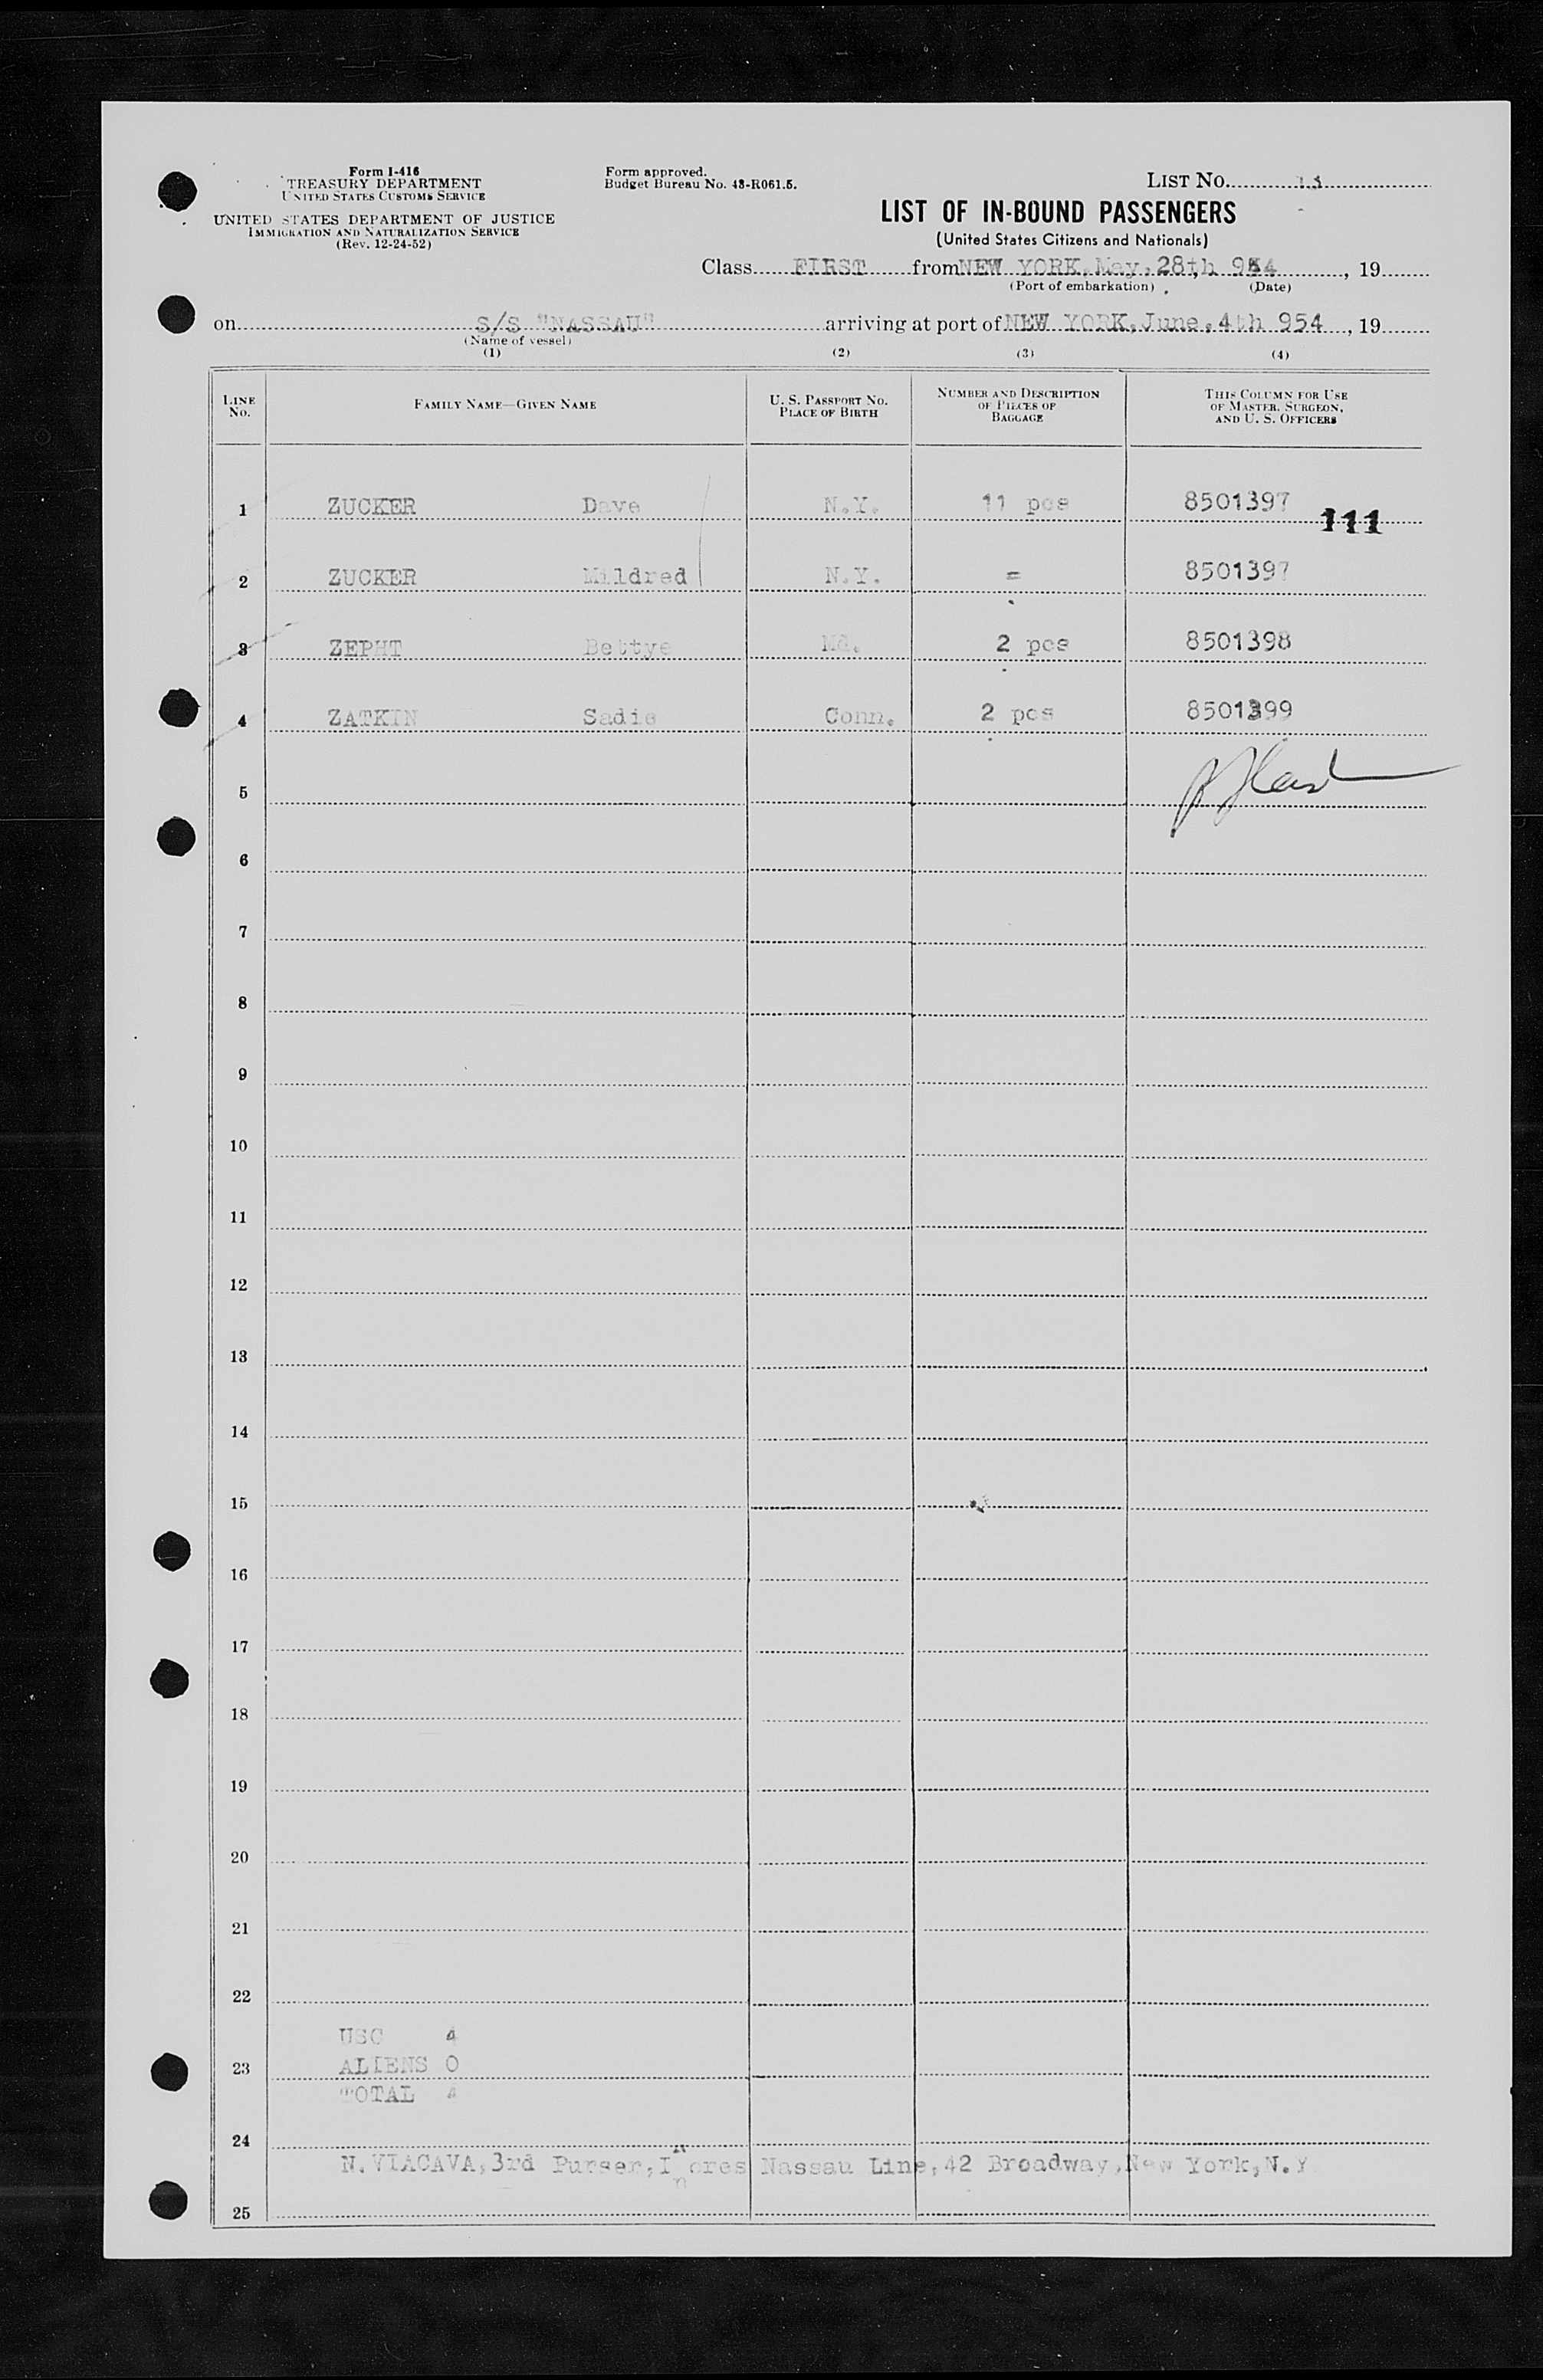 Form I-416
TREASURY DEPARTMENT
UNITED STATES CUSTOMS SERVICE
UNITED STATES DEPARTMENT OF JUSTICE
IMMIGRATION AND NATURALIZATION SERVICE
(Rev. 12-24-52)
Form approved.
Budget Bureau No. 43-R061.5.
LIST NO. 13
LIST OF IN-BOUND PASSENGERS
(United States Citizens and Nationals)
Class FIRST from NEW YORK, May, 28th 954, 19
(Port of embarkation) (Date)
on S/S "NASSAU" arriving at port of NEW YORK, June, 4th 954, 19
(Name of vessel)
(1) (2) (3) (4)
LINE NO. FAMILY NAME—GIVEN NAME U. S. PASSPORT NO. PLACE OF BIRTH NUMBER AND DESCRIPTION OF PIECES OF BAGGAGE THIS COLUMN FOR USE OF MASTER, SURGEON, AND U. S. OFFICERS
1 ZUCKER Dave N.Y. 11 pcs 8501397 111
2 ZUCKER Mildred N.Y. = 8501397
3 ZEPHT Bettye Md. 2 pcs 8501398
4 ZATKIN Sadie Conn. 2 pcs 8501399
5
6
7
8
9
10
11
12
13
14
15
16
17
18
19
20
21
22
USC 4
23 ALIENS 0
TOTAL 4
24
N.VIACAVA, 3rd Purser, Nassau Line, 42 Broadway, New York, N.Y
25